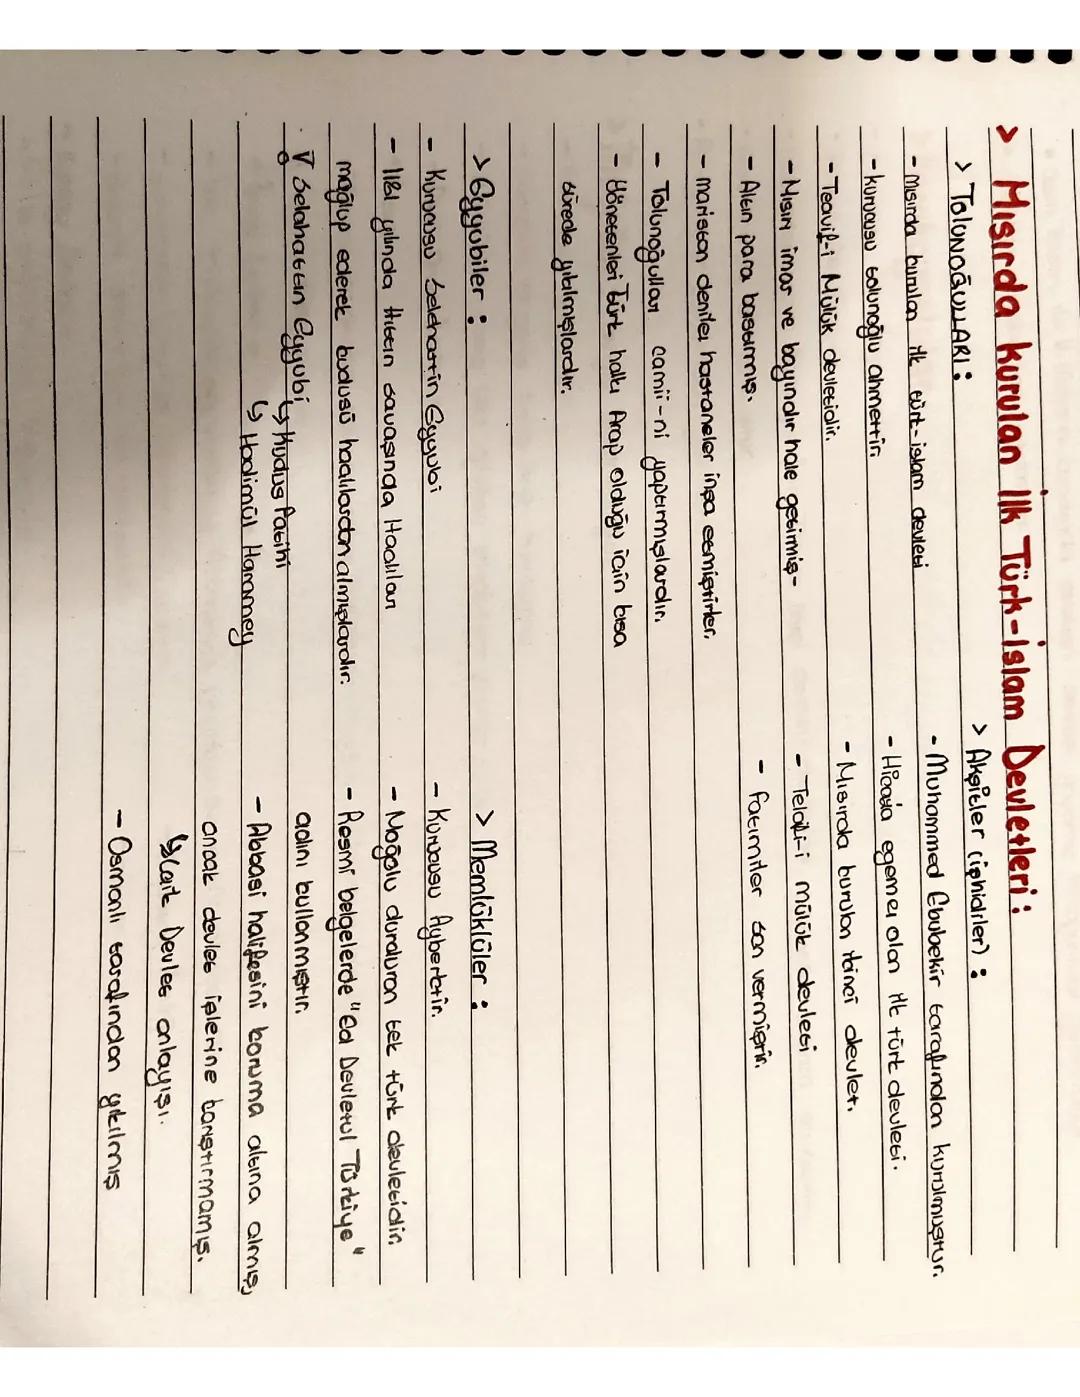 > Mısırda kurulan İlk Türk-İslam Devletleri:
> TOLUNOĞULLARI:
- Mısırda kurulan ilk türk-islam devleti
- kurucusu tolunoğlu ahmettir.
- Teavif-i Mülük devletidir.
- Mısırı imar ve bayındır hale getirmiş-
- Altın para bastırmış.
- maristan denilen hastaneler inşa etmiştirler.
- Tolunoğulları camii-ni yaptırmışlardır.
- Yönetenleri Türk halkı Arap olduğu için kısa
sürede yıkılmışlardır.
> Akşitler (işhidriler):
- Muhammed Ebubekir tarafından kurulmuştur.
- Hicazda egemen olan ilk türk devleti.
- Mısırda kurulan ikinci devlet.
- mülük devleti
- fatımiler son vermiştir.
> Eyyubiler:
- Kurucusu Selahattin Eyyubi
- 1181 yılında Hıttin savaşında Haçlıları
mağlup ederek kudüsü haçlılardan almışlardır.
Selahattin Eyyubi
↳ Kudüs Fatihi
↳ Hadimül Haramey
> Memlûklüler:
- Kurucusu Aybektir.
- Moğolu durduran tek türk devletidir.
- Resmi belgelerde "Ed Devletul Türkiye"
adını kullanmıştır.
- Abbasi halifesini koruma altına almış,
ancak devlet işlerine karıştırmamış.
↳ Laik Devlet anlayışı.
- Osmanlı tarafından yıkılmış